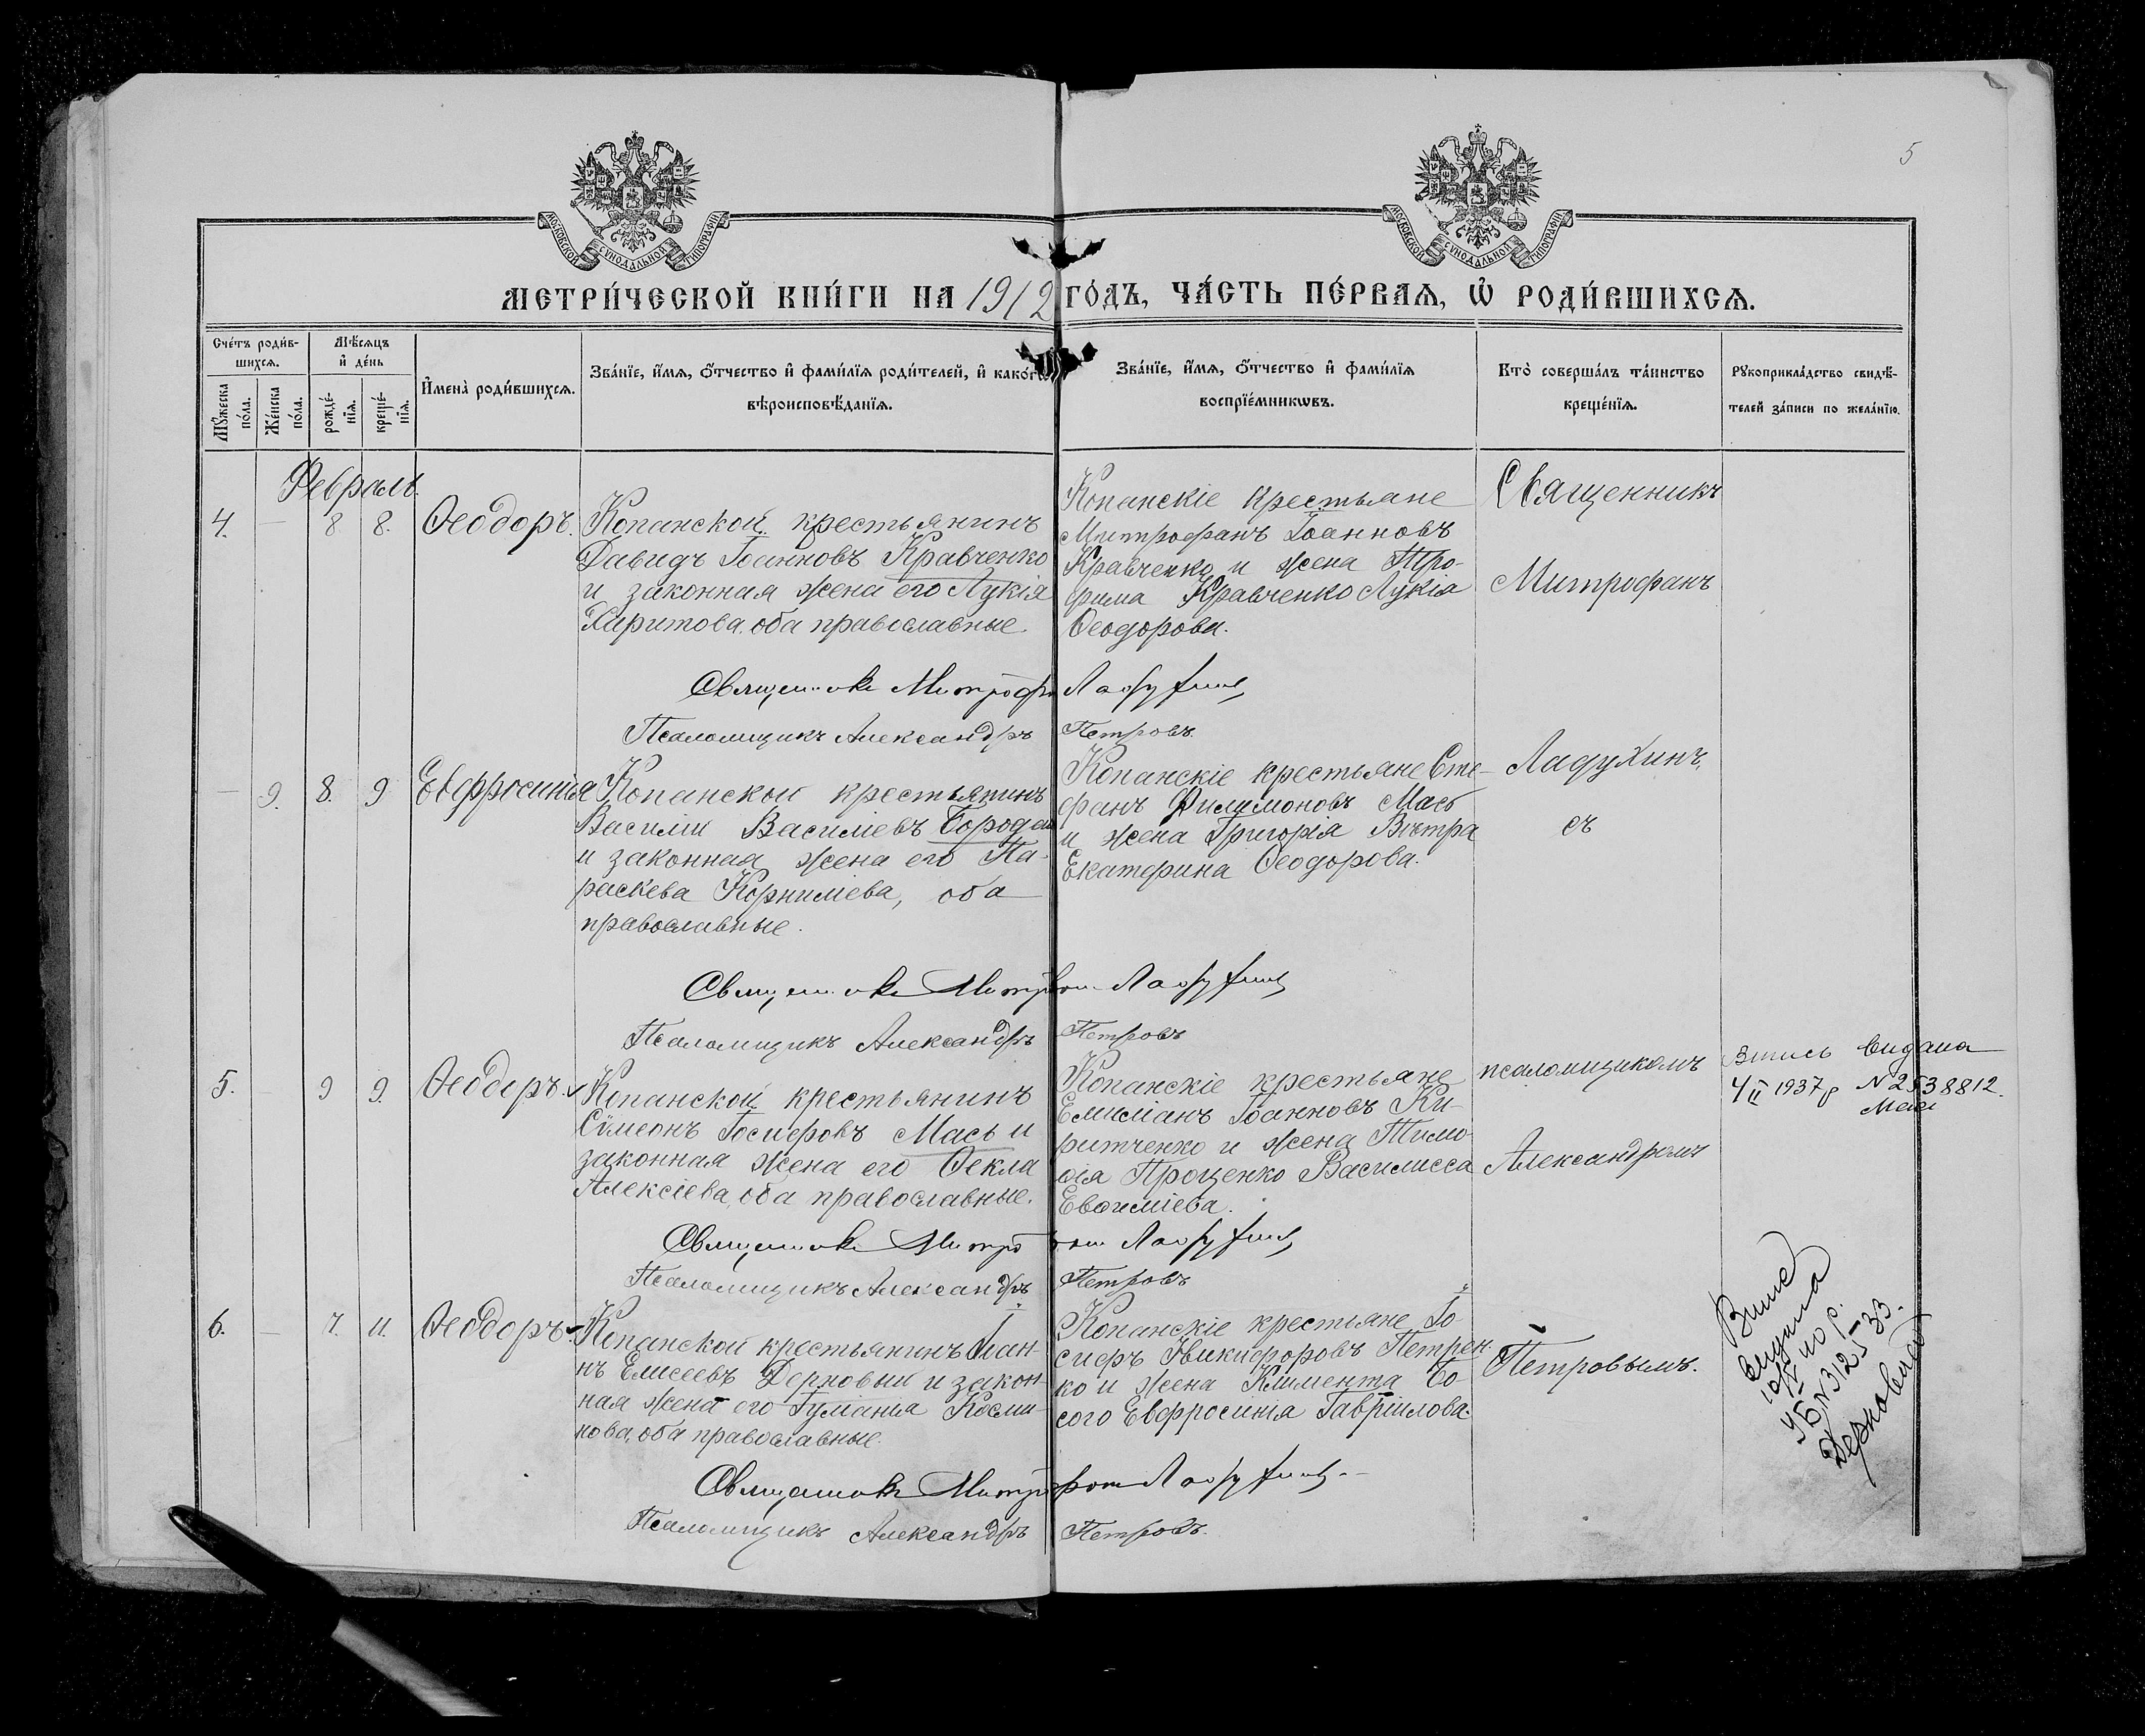 5
МОСКОВСКОЙ СѴНОДАЛЬНОЙ ТИПОГРАФІИ
МОСКОВСКОЙ СѴНОДАЛЬНОЙ ТИПОГРАФІИ
МЕТРИ́ЧЕСКОЙ КНИ́ГИ НА 1912 ГО́ДЪ, ЧА́СТЬ ПЕ́РВАѦ, Ѡ҆ РОДИ́ВШИХСѦ.
Сче́тъ роди́в-
шихсѧ.
Мꙋ́жеска по́ла.
Же́нска по́ла.
Мѣ́сѧцъ
и҆ де́нь
рожде́-
нїѧ.
креще́-
нїѧ.
И҆мена̀ роди́вшихсѧ.
Зва́нїе, и҆́мѧ, ѻ҆́тчество и҆ фами́лїѧ роди́телей, и҆ како́гѡ
вѣроисповѣ́данїѧ.
Зва́нїе, и҆́мѧ, ѻ҆́тчество и҆ фами́лїѧ
воспрїе́мникѡвъ.
Кто̀ соверша́лъ та́инство
креще́нїѧ.
Рꙋкоприкла́дство свидѣ́-
телей за́писи по жела́нїю.
Февраль.
4. — 8 8. Ѳеодоръ.
Копанской крестьянинъ
Давидъ Іоанновъ Кравченко
и законная жена его Лукія
Харитова, оба православные.
Копанскіе крестьяне
Митрофанъ Іоанновъ
Кравченко и жена Тро-
фима Кравченко Лукія
Ѳеодорова.
Священникъ
Митрофанъ
Священникъ Митрофанъ Ладухинъ
Псаломщикъ Александръ Петровъ.
— 9. 8. 9 Евфросинія
Копанской крестьянинъ
Василій Василіевъ Бородай
и законная жена его Па-
раскева Корниліева, оба
православные.
Копанскіе крестьяне Сте-
фанъ Филимоновъ Мась
и жена Григорія Вѣтра
Екатерина Ѳеодорова.
Ладухинъ,
съ
Священникъ Митрофанъ Ладухинъ
Псаломщикъ Александръ Петровъ
5. — 9 9. Ѳеодоръ.
Копанской крестьянинъ
Сѵмеонъ Іосифовъ Мась и
законная жена его Ѳекла
Алексіева, оба православные.
Копанскіе крестьяне
Емиліанъ Іоанновъ Ки-
ритченко и жена Тимо-
ѳія Проценко Василисса
Евѳиміева.
псаломщикомъ
Александромъ
видана
4/II 1937 р N 2538812.
Священникъ Митрофанъ Ладухинъ
Псаломщикъ Александръ Петровъ
6. — 7. 11. Ѳеодоръ.
Копанской крестьянинъ Іоан-
нъ Елисеевъ Дерновый и закон-
ная жена его Гуманія Косми-
нова, оба православные.
Копанскіе крестьяне Іо-
сифъ Никифоровъ Петрен-
ко и жена Климента Бо-
сого Евфросинія Гавріилова.
Петровымъ.
видана
Священникъ Митрофанъ Ладухинъ
Псаломщикъ Александръ Петровъ.